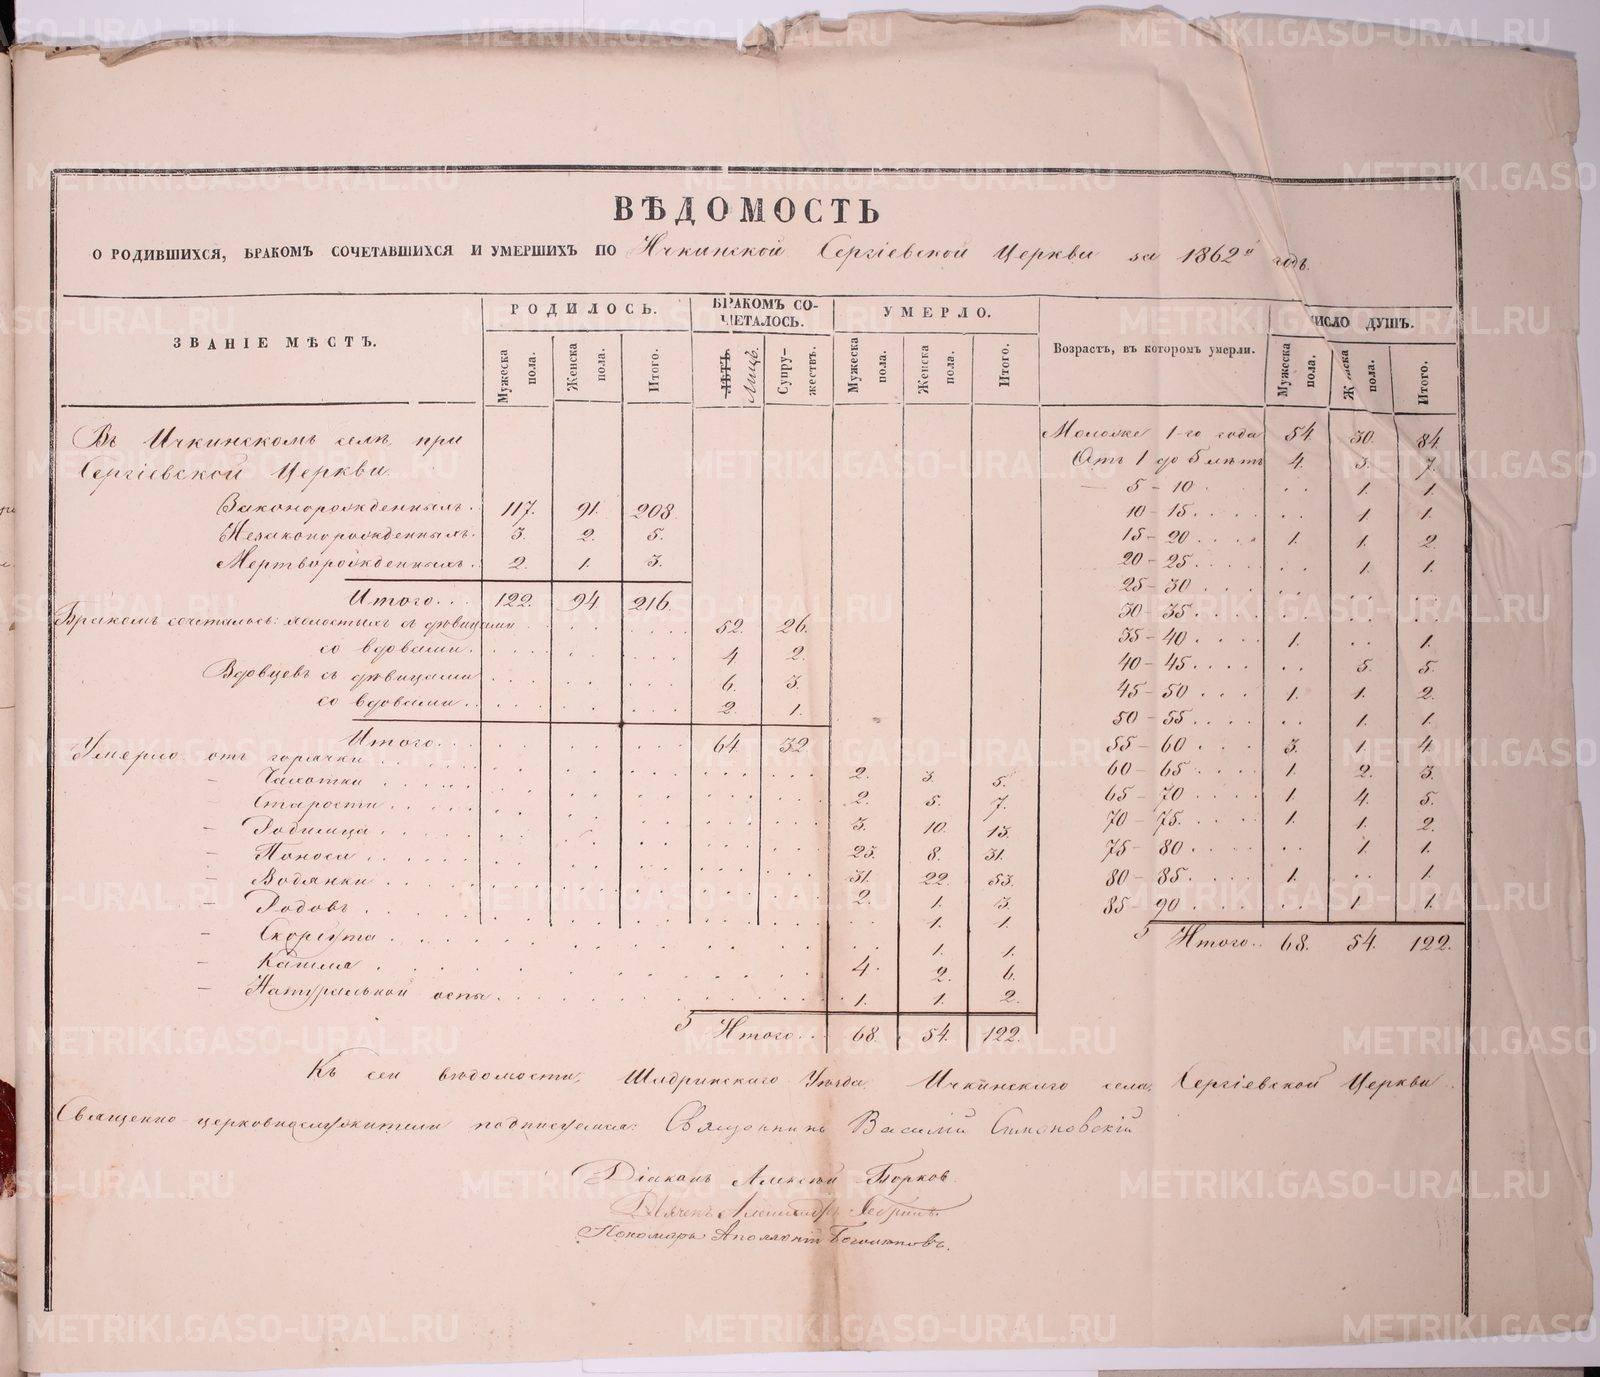 ВѢДОМОСТЬ
О РОДИВШИХСЯ, БРАКОМЪ СОЧЕТАВШИХСЯ И УМЕРШИХЪ ПО Ичкинской Сергіевской Церкви за 1862й годъ.
ЗВАНІЕ МѢСТЪ.
РОДИЛОСЬ.
Мужеска пола.
Женска пола.
Итого.
БРАКОМЪ СОЧЕТАЛОСЬ.
ЛѢТЪ Лицъ.
Супружествъ.
УМЕРЛО.
Мужеска пола.
Женска пола.
Итого.
Возрастъ, въ которомъ умерли.
ЧИСЛО ДУШЪ.
Мужеска пола.
Женска пола.
Итого.
Въ Ичкинскомъ селѣ при
Сергіевской Церкви
Законорожденныхъ. 117. 91. 208
Незаконорожденныхъ. 3. 2. 5.
Мертворожденныхъ. 2. 1. 3.
Итого... 122. 94 216.
Бракомъ сочеталось: холостыхъ съ дѣвицами 52. 26.
со вдовами. 4 2.
Вдовцевъ съ дѣвицами 6. 3.
со вдовами.. 2. 1.
Итого... 64. 32
Умерло отъ горячки 2. 3. 5.
– Чахотки 2. 5. 7.
Старости 3. 10. 13.
– Родимца 23. 8. 31.
– Поноса 31. 22. 53.
– Водянки 2. 1. 3.
– Родовъ . 1. 1.
– Скорбута . 1. 1.
– Кашля 4. 2. 6.
– Натуральной оспы 1. 1. 2.
Итого... 68. 54. 122.
Моложе 1-го года 54 30. 84.
Отъ 1 до 5 лѣтъ 4. 3. 7.
— 5 – 10 . . 1. 1.
10 – 15. . . . . . 1. 1.
15 – 20. . . . 1. 1. 2.
20 – 25. . . . . . 1. 1.
25 – 30 . . . . . . . .
30 – 35. . . . . . . . . .
35 – 40. . . . 1. . . 1.
40 – 45. . . . . . 5. 5.
45 – 50 . . . 1. 1. 2.
50 – 55. . . . . . 1. 1.
55 – 60 . . . 3. 1. 4.
60 – 65. . . . 1. 2. 3.
65 – 70 . . . . 1. 4. 5.
70 – 75. . . . 1. 1. 2.
75 – 80. . . . . . 1. 1.
80 – 85. . . . 1. . . 1.
85 – 90. . . . . . 1 1.
Итого.. 68. 54. 122.
Къ сей вѣдомости, Шадринскаго Уѣзда Ичкинскаго села, Сергіевской Церкви
Священно-церковнослужители подписуемся: Священникъ Василій Симоновскій
Діаконъ Алексѣй Борков
Дьячекъ Александръ
Пономарь Аполлоній
METRIKI.GASO-URAL.RU